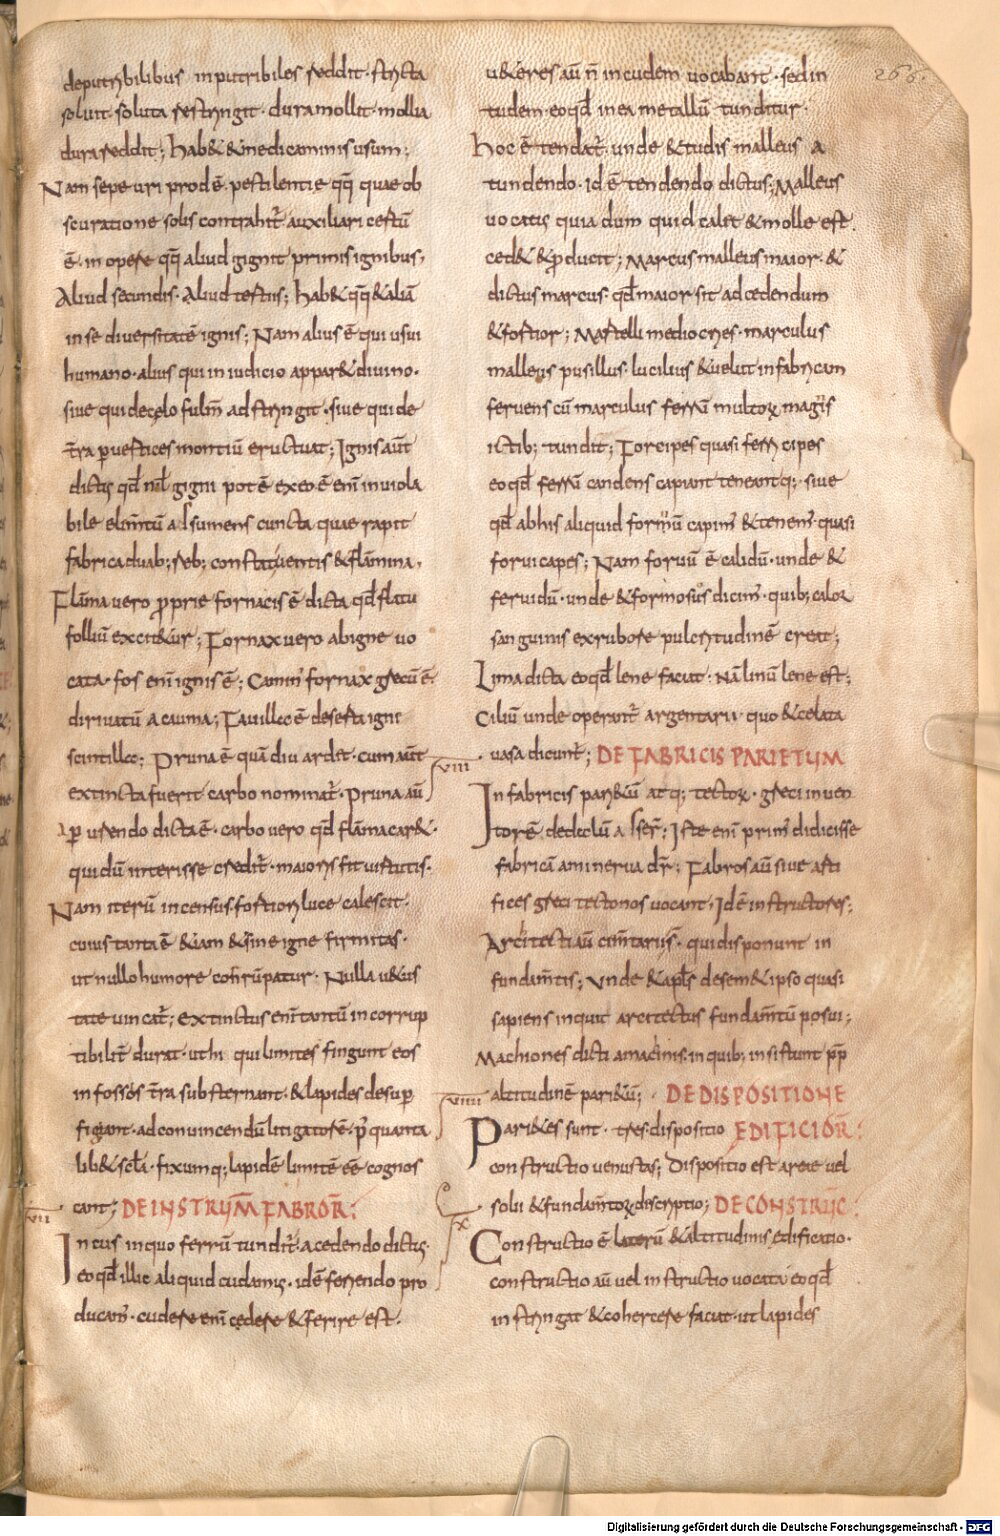 deputrybilibus inputribiles reddit · stricta
soluit · soluta restryngit · dura mollit · mollia
dura reddit ; hab& & medicaminis usum ;
Nam sepe uri prod ē pestilentie qq̄ quae ob
scuratione solis contrahit̄ auxiliari certū
ē · in opere qq̄ aliud gignit primis ignibus ·
Aliud secundis · Aliud tertius ; hab& q̄q̄ & aliā
in se diuersitatē ignis ; Nam alius ē qui usui
humano · alius qui in iudicio appar& diuino ·
siue qui de celo fulm̄ adstryngit · siue qui de
t̄ra p uertices montiū eructuat ; Ignis aūt
dictus qd̄ nil gigni pot ē ex eo ē enī inuiola
bile elim̄tū adsumens cuncta quae rapit
fabrica duab; reb; constat uentis & flāmma ·
Flāma uero proprie fornacis ē dicta qd̄ flatu
folliū excit&ur ; Fornax uero ab igne uo
cata · fos enī ignis ē ; Camin' fornax grecū ē
diriuatū a cauma ; Fauillec ē deserta igni
scintillec ; Pruna ē quā diu ardet · cum aūt
extincta fuerit carbo nominat̄ · Pruna aū
a p urendo dicta ē · carbo uero qd̄ flāma car& ·
qui dū interisse credit̄ · maioris fit uirtutis ·
Nam iterū incensus fortiori luce calescit ·
cuius tanta ē &iam & sine igne firmitas ·
ut nullo humore corrūpatur · Nulla u&us
tate uincat̄ ; extinctus enī tantū incorrup
tibilit̄ durat · ut hi qui limites fingunt eos
in fossos t̄ra substernant · & lapides desup
figant · ad conuincendū litigatorē · p̄ quanta
lib& scl̄a · fixumq; lapidē limitē eē cognos
VII cant ; DE INSTRUM̄ FABROR̄ ·
Incus in quo ferrū tundit̄ · a cedendo dictus ·
eo qd̄ illic aliquid cudamus · idē feriendo pro
ducam' · cudere enī cedere & ferire est ·
u&eres aū n̄ incudem uocabant · sed in
tudem eo qd̄ in ea metallū tunditur ·
hoc ē tendat̄ · unde & tudis malleus a
tundendo · id ē tendendo dictus ; Malleus
uocatus quia dum quid calet & molle est ·
ced& & p̄ducit ; Marcus malleus maior · &
dictus marcus · qd̄ maior sit ad cedendum
& fortior ; Martelli mediocres · marculus
malleus pusillus · lucilius & uelut in fabrycam
feruens cū marculus ferrū multor̄ magis
ictib; tundit ; Forcipes quasi ferri cipes
eo qd̄ ferrū candens capiant teneantq; siue
qd̄ ab his aliquid formū capim' & tenem' · quasi
foruicapes ; Nam foruū ē calidū · unde &
feruidū · unde & formosus dicim' · quib; calor
sanguinis ex rubore pulcritudinē creat ;
Lima dicta eo qd̄ lene faciat · nā linū lene est ;
Ciliū unde operant̄ argentarii · quo & celata
VIII uasa dicunt̄ ; DE FABRICIS PARIETUM
In fabricis pari&ū atq; tector̄ · greci inuen
torē dedelū adser̄ ; Iste enī prim' didicisse
fabricā a minerua dr̄ ; Fabros aū siue arti
fices greci tectonos uocant · Id ē instructores ;
Architecti aū cim̄tarii s̄ · qui disponunt in
fundam̄tis ; unde & apl̄s de sem&ipso quasi
sapiens inquit arcitectus fundam̄tū posui ;
Machiones dicti a macinis in quib; insistunt p̄p̄
altitudinē pari&ū ; · DE DISPOSITIONE
VIIII Pari&es sunt · tres · dispositio EDIFICIOR̄ :
constructio uenustas ; Dispositio est areae uel
soli & fundam̄tor̄ discriptio ; DE CONSTRUC :
X Constructio ē laterū & altitudinis edificatio ·
constructio aū uel instructio uocata eo qd̄
instryngat & cohercere faciat · ut lapides
266.
Digitalisierung gefördert durch die Deutsche Forschungsgemeinschaft - DFG